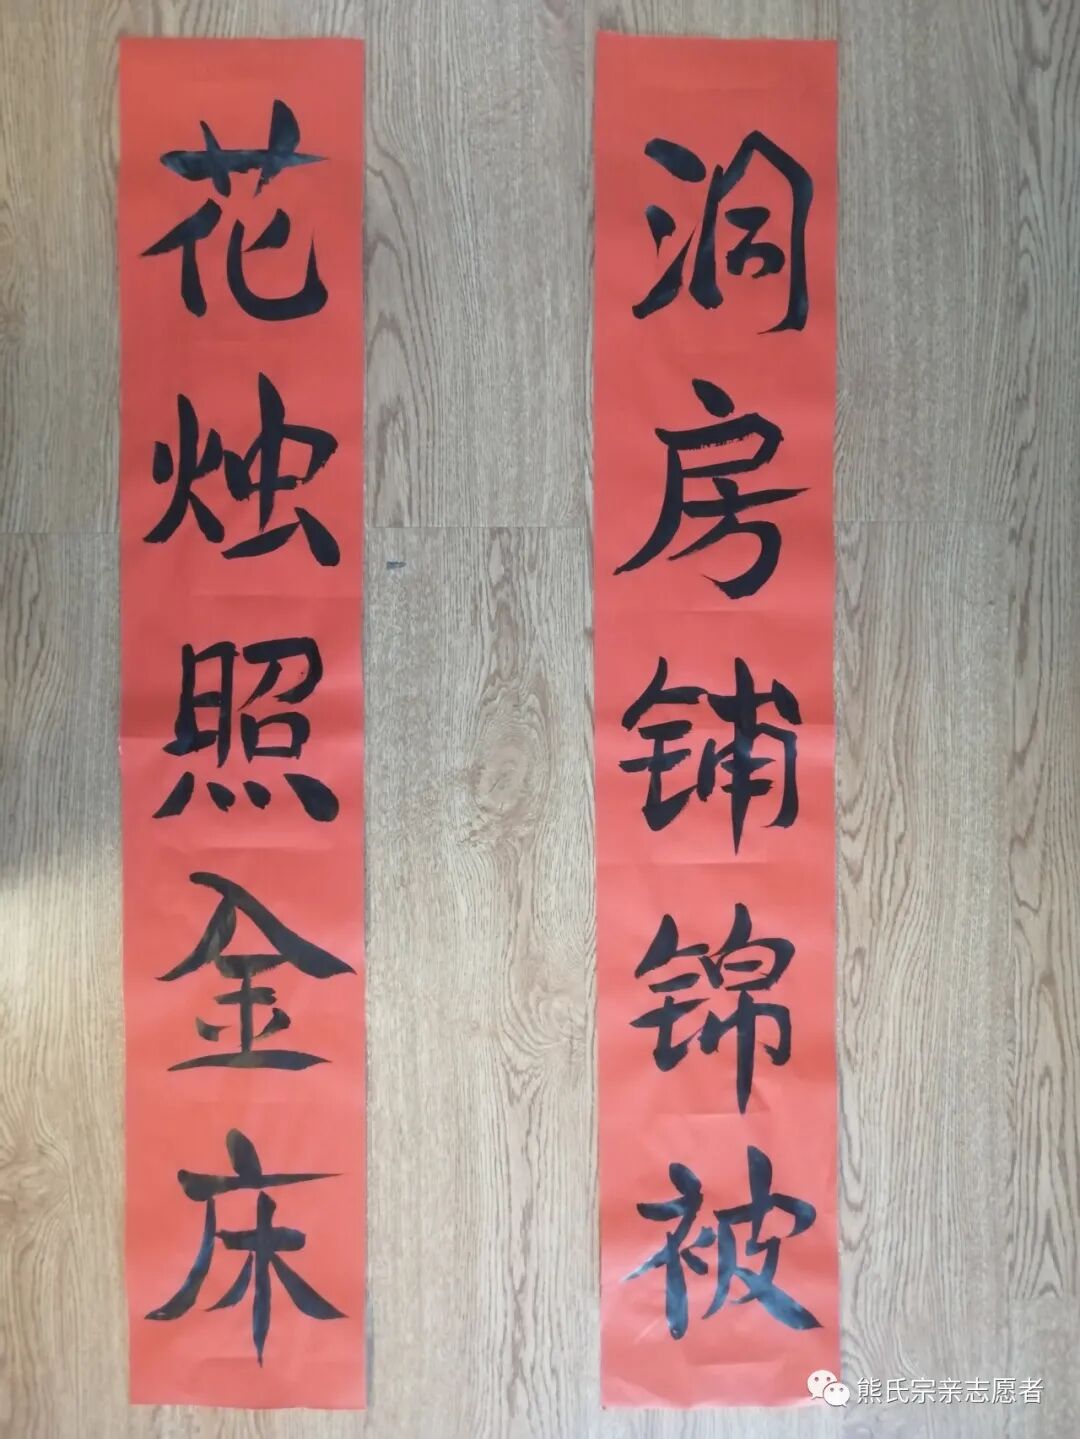 洞房铺锦被
花烛照金床
熊氏宗亲志愿者